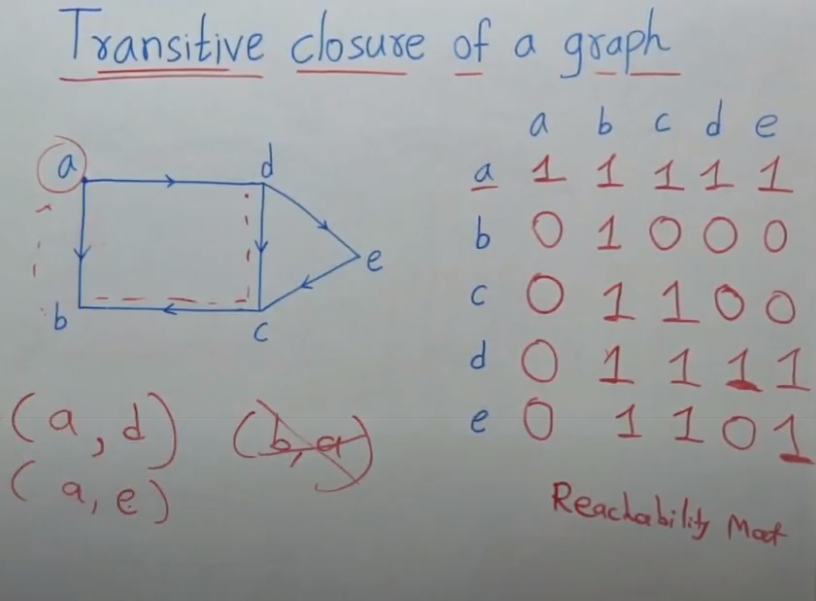 Transitive closure of a graph
a b c d e
a 1 1 1 1 1
b 0 1 0 0 0
c 0 1 1 0 0
d 0 1 1 1 1
e 0 1 1 0 1
a d
e
b c
(a, d) (b, a)
(a, e)
Reachability Mat